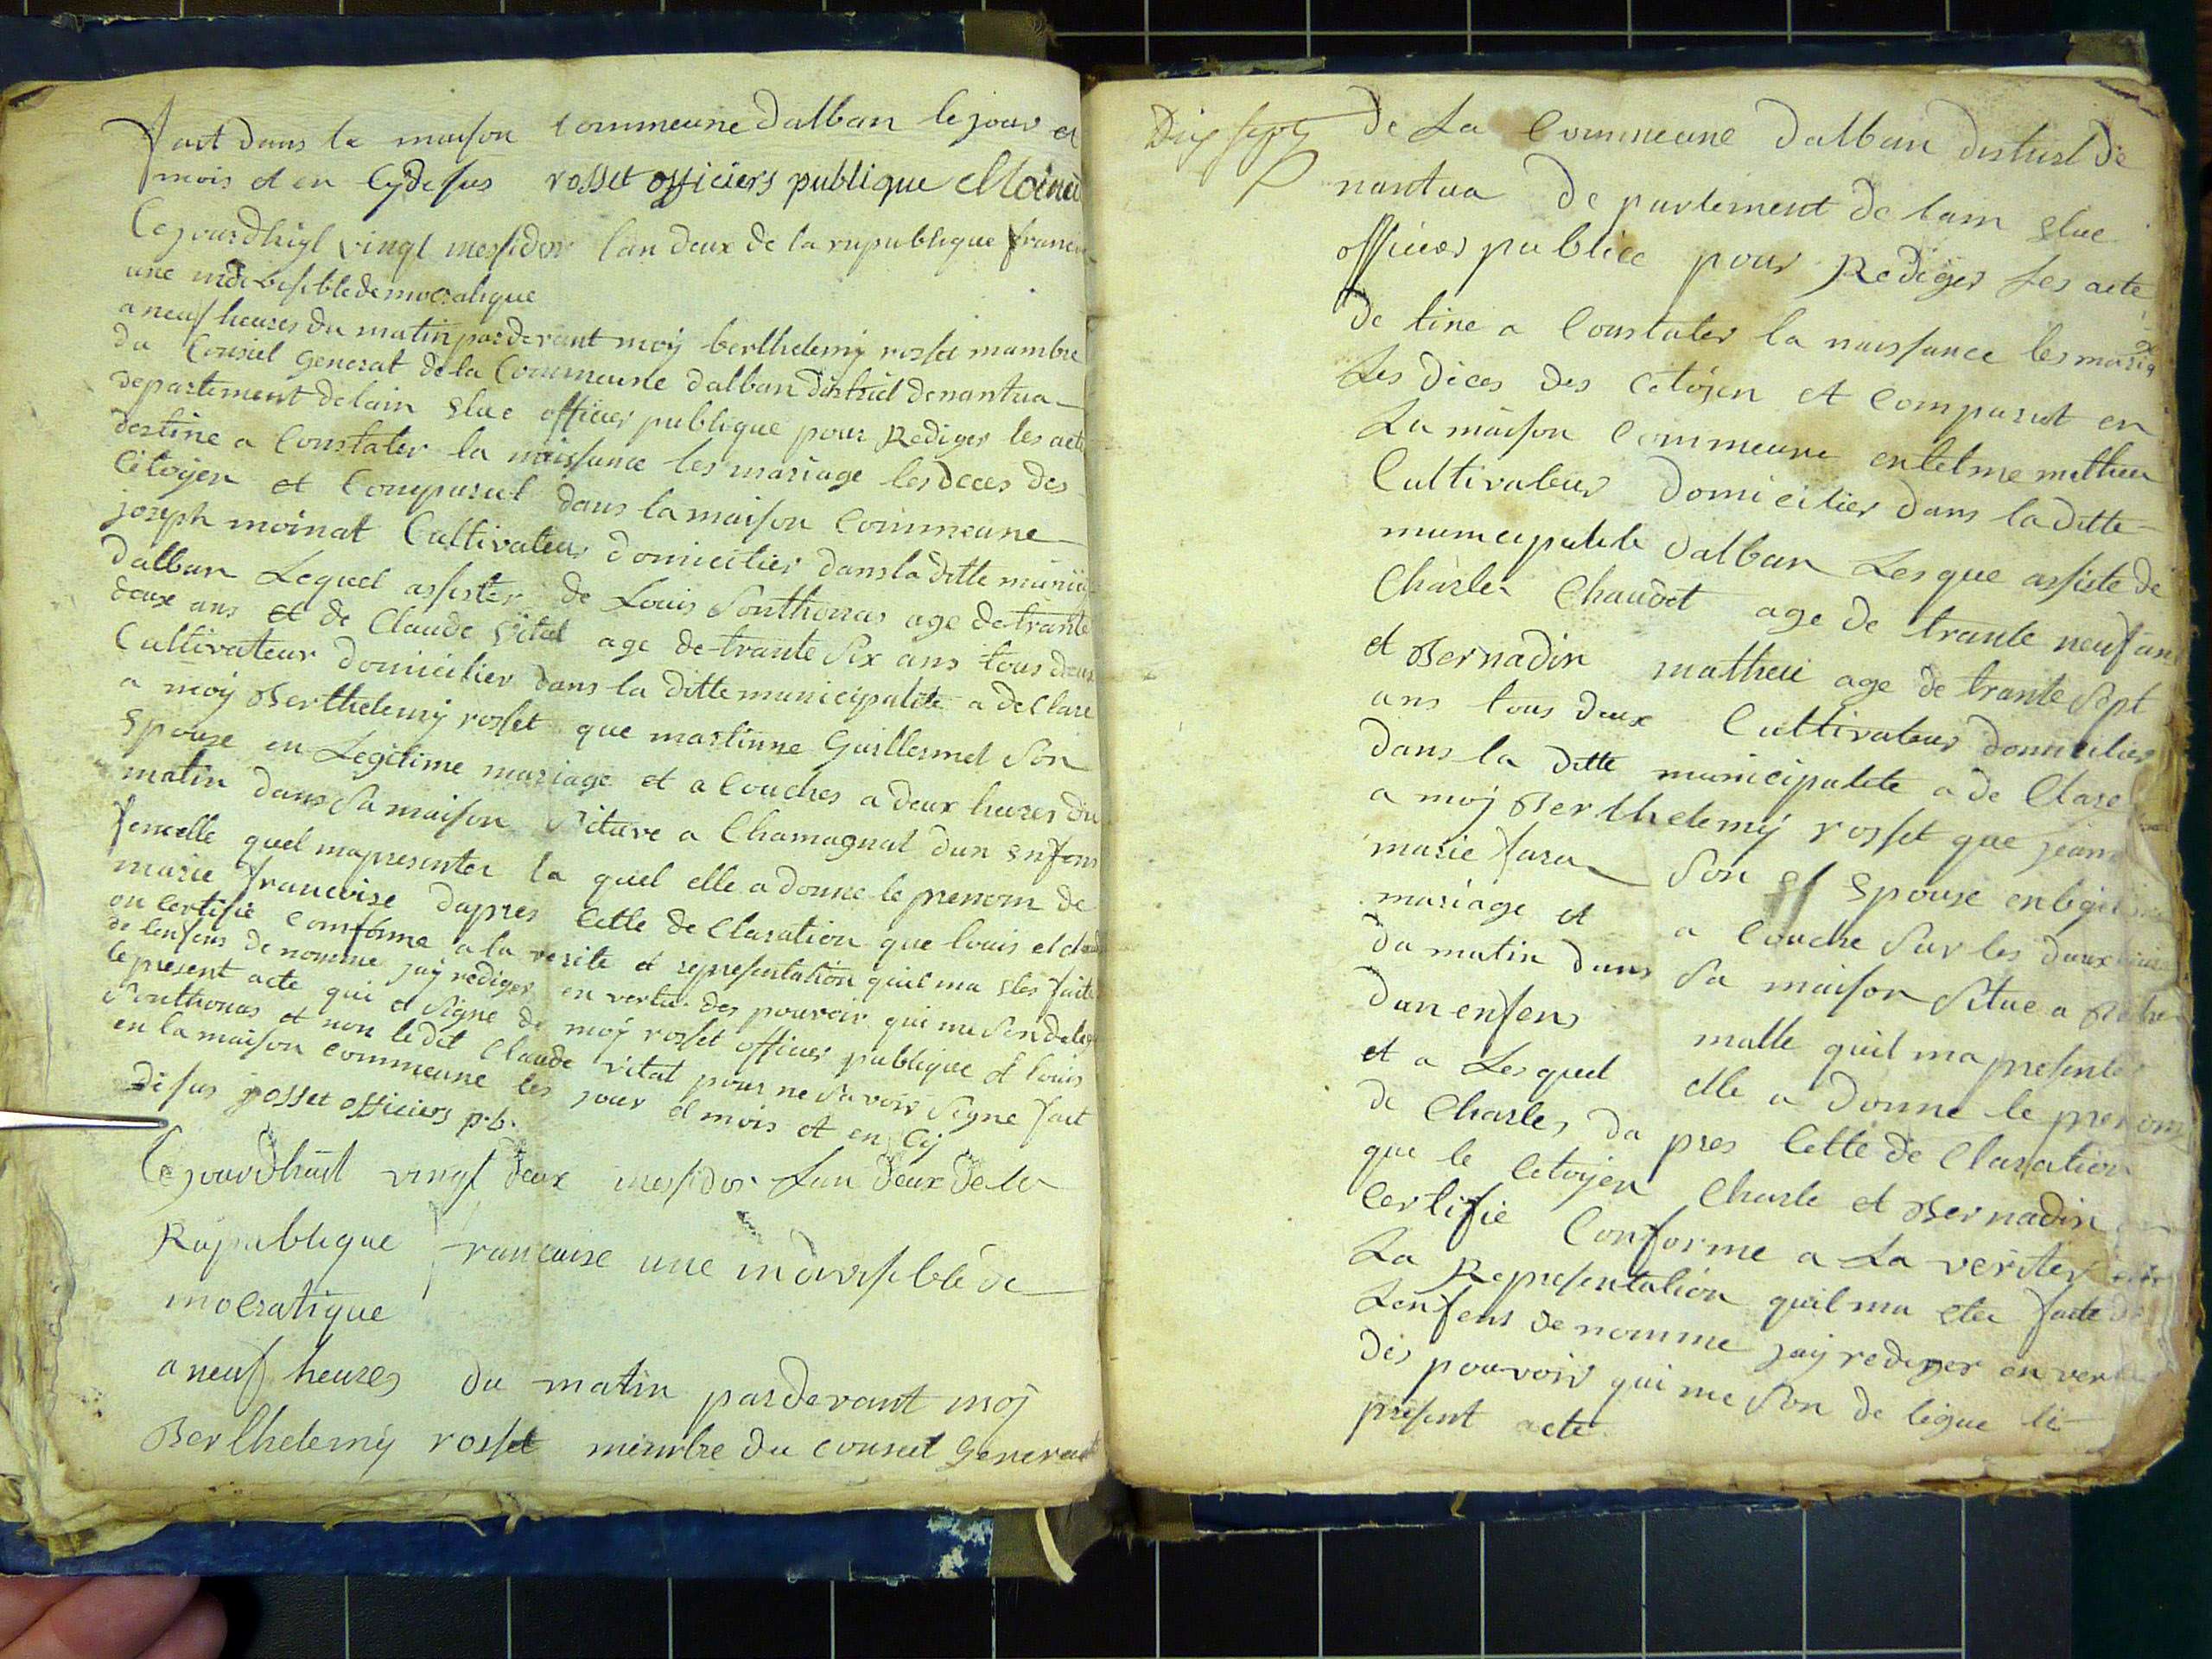 fait dans la maison Commeune dalban le jour et
mois et en Cydesus rosset officiers publique Moinat
Cejourdhuyt vingt messidor lan deux de la republique francai
une indevisible democratique
a neuf heures du matin par devant moÿ berthelemÿ rosset mambre
du Consiel General de la Commeune dalban district denantua
departement delain Elue officier publique pour Rediger les acte
destine a Constater la naissance les mariage les deces des
Citoÿen et Comparut dans la maison Commeune
joseph moinat Cultivateur domicilier dans la ditte munici
dalban Lequel assister de Louis Sonthonas age de trante
deux ans et de Claude Vital age de trante Six ans tous deux
Cultivateur domicilier dans la ditte municipalite a declare
a moÿ Berthelemÿ rosset que martinne Guillermet Son
Epouse en Legitime mariage et a Couches a deux heures du
matin dans Sa maison Situve a Chamagnat dun enfens
femelle quel mapresenter la quel elle a donne le prenom de
marie francoise dapres Cette declaration que louis et claud
on Certifie Comforme a la verite et representation quil ma etes faite
de lenfens de nomme jaÿ rediger en vertu des pouvoir qui me Son deleg
le present acte qui a Signe de moÿ rosset officier publique et louis
Sonthonas et non ledit Claude vital pour ne Savoir Signe fait
en la maison Commeune les jour et mois et en Cÿ
desus rosset officiers p.b.
Cejourdhuit vingt deux messidor Lan deux de la
Republique francaise une indivisible de
mocratique
a neuf heures du matin pardevant moÿ
Berthelemÿ rosset membre du Conseil General
Dix sept
de La Commeune dalban distrist de
nantua departement de lain Elue
officier publice pour Rediger Les acte
de tine a Constater la naissance les maria
Les deces des Citoÿen et Comparut en
La maison Commeune entelme matheu
Cultivateur domicilier dans la ditte
municipalite dalban Lesque assiste de
Charles Chaudet age de trante neuf ans
et Bernadin matheu age de trante Sept
ans tous deux Cultivateur domicilier
dans la ditte municipalite a de Clare
a moÿ Berthelemÿ rosset que jeanne
marie fara Son Epouse en legitime
mariage et a Couche Sur les deux heures
du matin dans Sa maison Situe a
dun enfens malle quil ma presenter
et a Lesquel elle a donne le prenom
de Charles da pres Cette de Claration
que le Citoÿen Charle et Bernadin on
Certifie Conforme a La veriter et a
La Representation quil ma ete faite de
Lenfens denomme jaÿ rediger en vertu
des pouvoir qui me Son de legue le
present acte